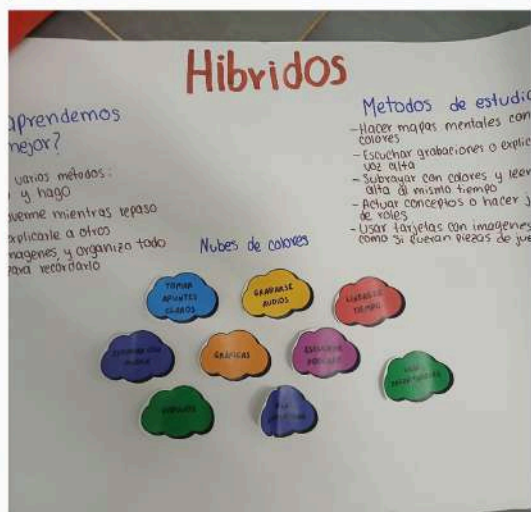 Hibridos
aprendemos
mejor?
varios métodos:
y hago
mientras repaso
explicarle a otros
imagenes, y organizo todo
para recordarlo
Metodos de estudio
-Hacer mapas mentales con
colores
-Escuchar grabaciones o explic
voz alta
-Subrayar con colores y leer
alta al mismo tiempo
-Actuar conceptos o hacer j
de roles
-Usar tarjetas con imagenes
como si fueran piezas de jue
Nubes de colores
TOMAR
APUNTES
CLAROS
GRABARSE
AUDIOS
TIEMPO
GRÁFICAS
ESCUCHAR
PODCAST